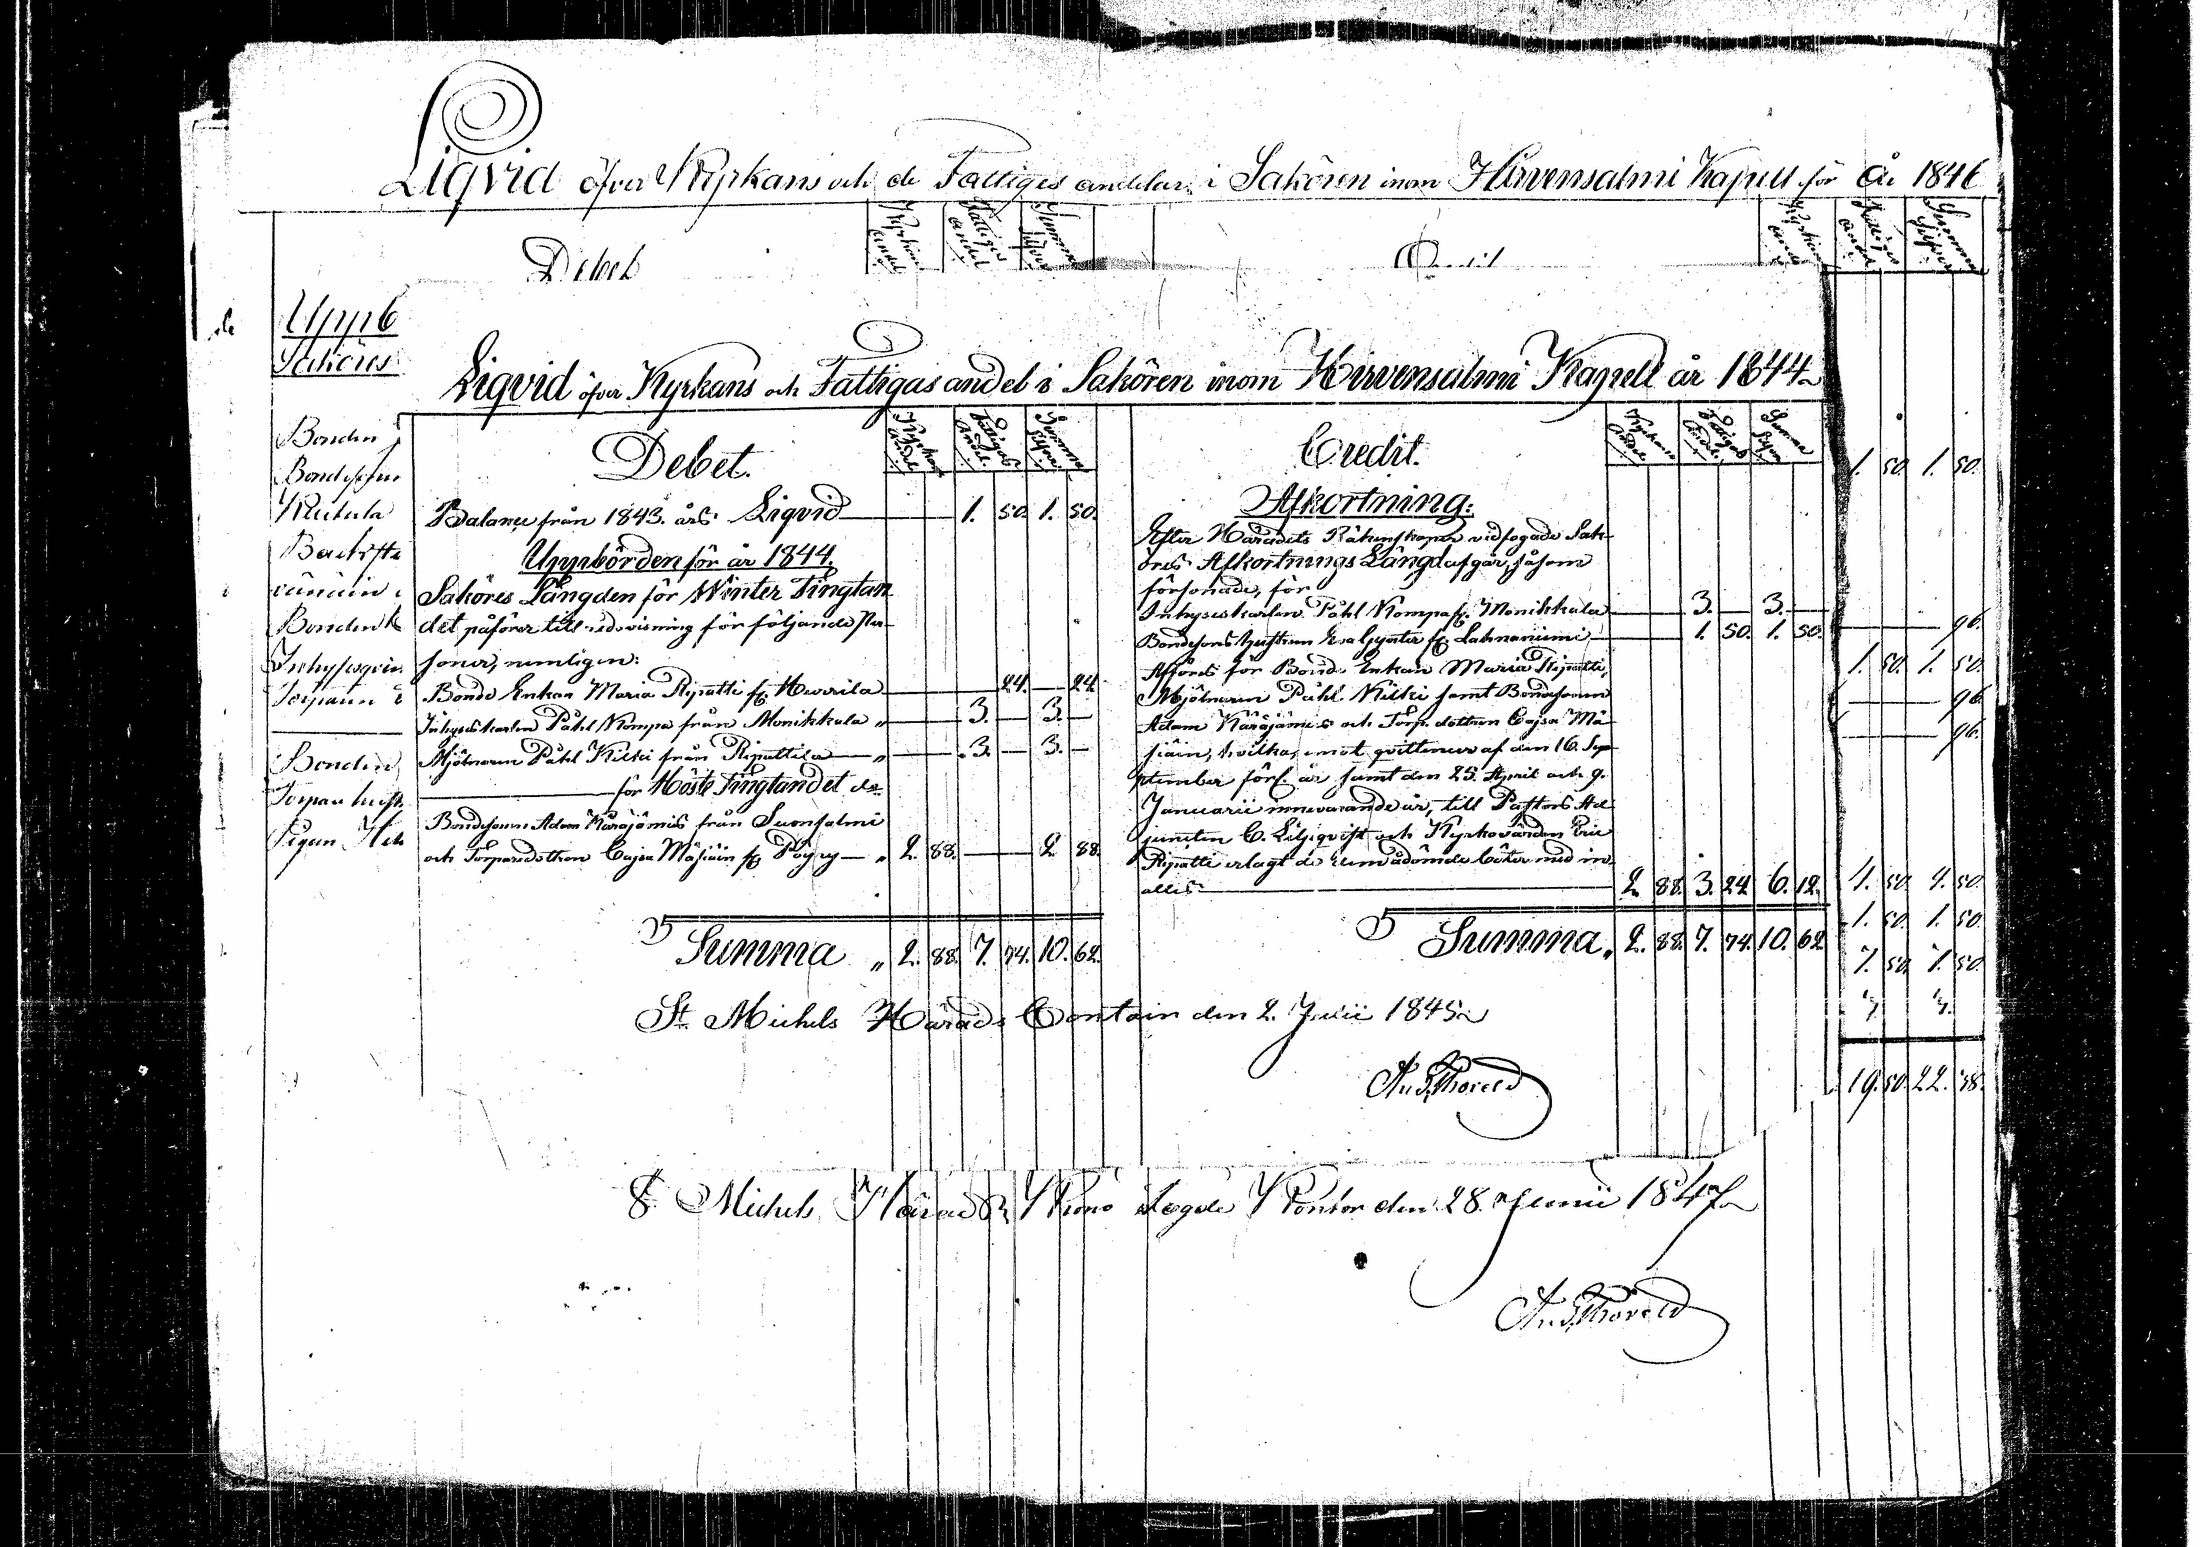 Liqvid öfver Kyrkans och de Fattiges andelar i Sakören inom Hirvensalmi Kapell för År 1846
Debet
Kyrkans andel
Fattiges andel
Summa Silfver
Kyrkans andel
Fattiges andel
Summa Silfver
Uppb
Sakörs
Bonden
Bondeson
Bonden
Bonden
Pigan
1. 50. 1. 50.
96.
1. 50. 1. 50.
96.
96.
4. 50. 4. 50.
1. 50. 1. 50.
7. 50. 7. 50.
19. 50. 22. 38.
Liqvid öfver Kyrkans och Fattigas andel i Sakören inom Hirvensalmi Kapell år 1844
Debet. Kyrkans Andel. Fattigas Andel. Summa Silfver
Balance från 1843. års Liqvid 1. 50. 1. 50.
Uppbörden för år 1844.
Saköres Längden för Winter Tingtan
det påförer till redovisning för följande Per-
soner, nemligen:
Bonde Enkan Maria Ripatti fr. Heverila 24. 24.
Inhyseskarlen Påhl Kompa från Monikkala " 3. 3.
Mjölnaren Påhl Kilki från Ripattila " 3. 3.
för Höste Tingtandet do
Bondesonen Adam Käräjämis från Suonsalmi
och Torparedottren Cajsa Mäsiäin fr. Pöyry " 2. 88. 2. 88.
Summa " 2. 88. 7. 74. 10. 62.
Credit. Kyrkans Andel. Fattigas Andel. Summa Silfver
Afkortning:
Efter Häradets Räkenskaper vidfogade Sak-
öres Afkortnings Längd afgår, såsom
försonade, för
Inhyseskarlen Påhl Kompa fr. Monikkala 3. 3.
Bondesons hustrun Eva fr. Lahnaniemi 1. 50. 1. 50.
Afföres för Bonde Enkan Maria Ripatti,
Mjölnaren Påhl Kilki samt Bondesonen
Adam Käräjämis och Torp. dottren Cajsa Mä-
siäin, hvilka, emot qvittencer af den 16. Sep-
tember förl. år samt den 25. April och 9.
Januarii innevarande år, till Pastors Ad-
juncten C. Liljeqvist och Kyrkovärden Eric
Ripatti erlagt de dem ådömda böter med in
alles 2. 88. 3. 24. 6. 12.
Summa " 2. 88. 7. 74. 10. 62.
St. Michels Härads Contoir den 2. Julii 1845
St. Michels Härads Krono Fogde Kontor den 28. Junii 1847